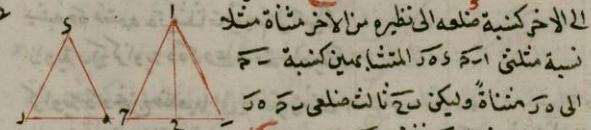 الى الاخر كنسبة ضلعه الى نظيره من الاخر مثناة مثلا
نسبة مثلثى ا ب ح ء ه ر المتشابهين كنسبة ب ح
الى ه ر مثناةً وليكن ب ح ثالث ضلعى ب ح ه ر
ء
ا
ر
ه
ح
ب